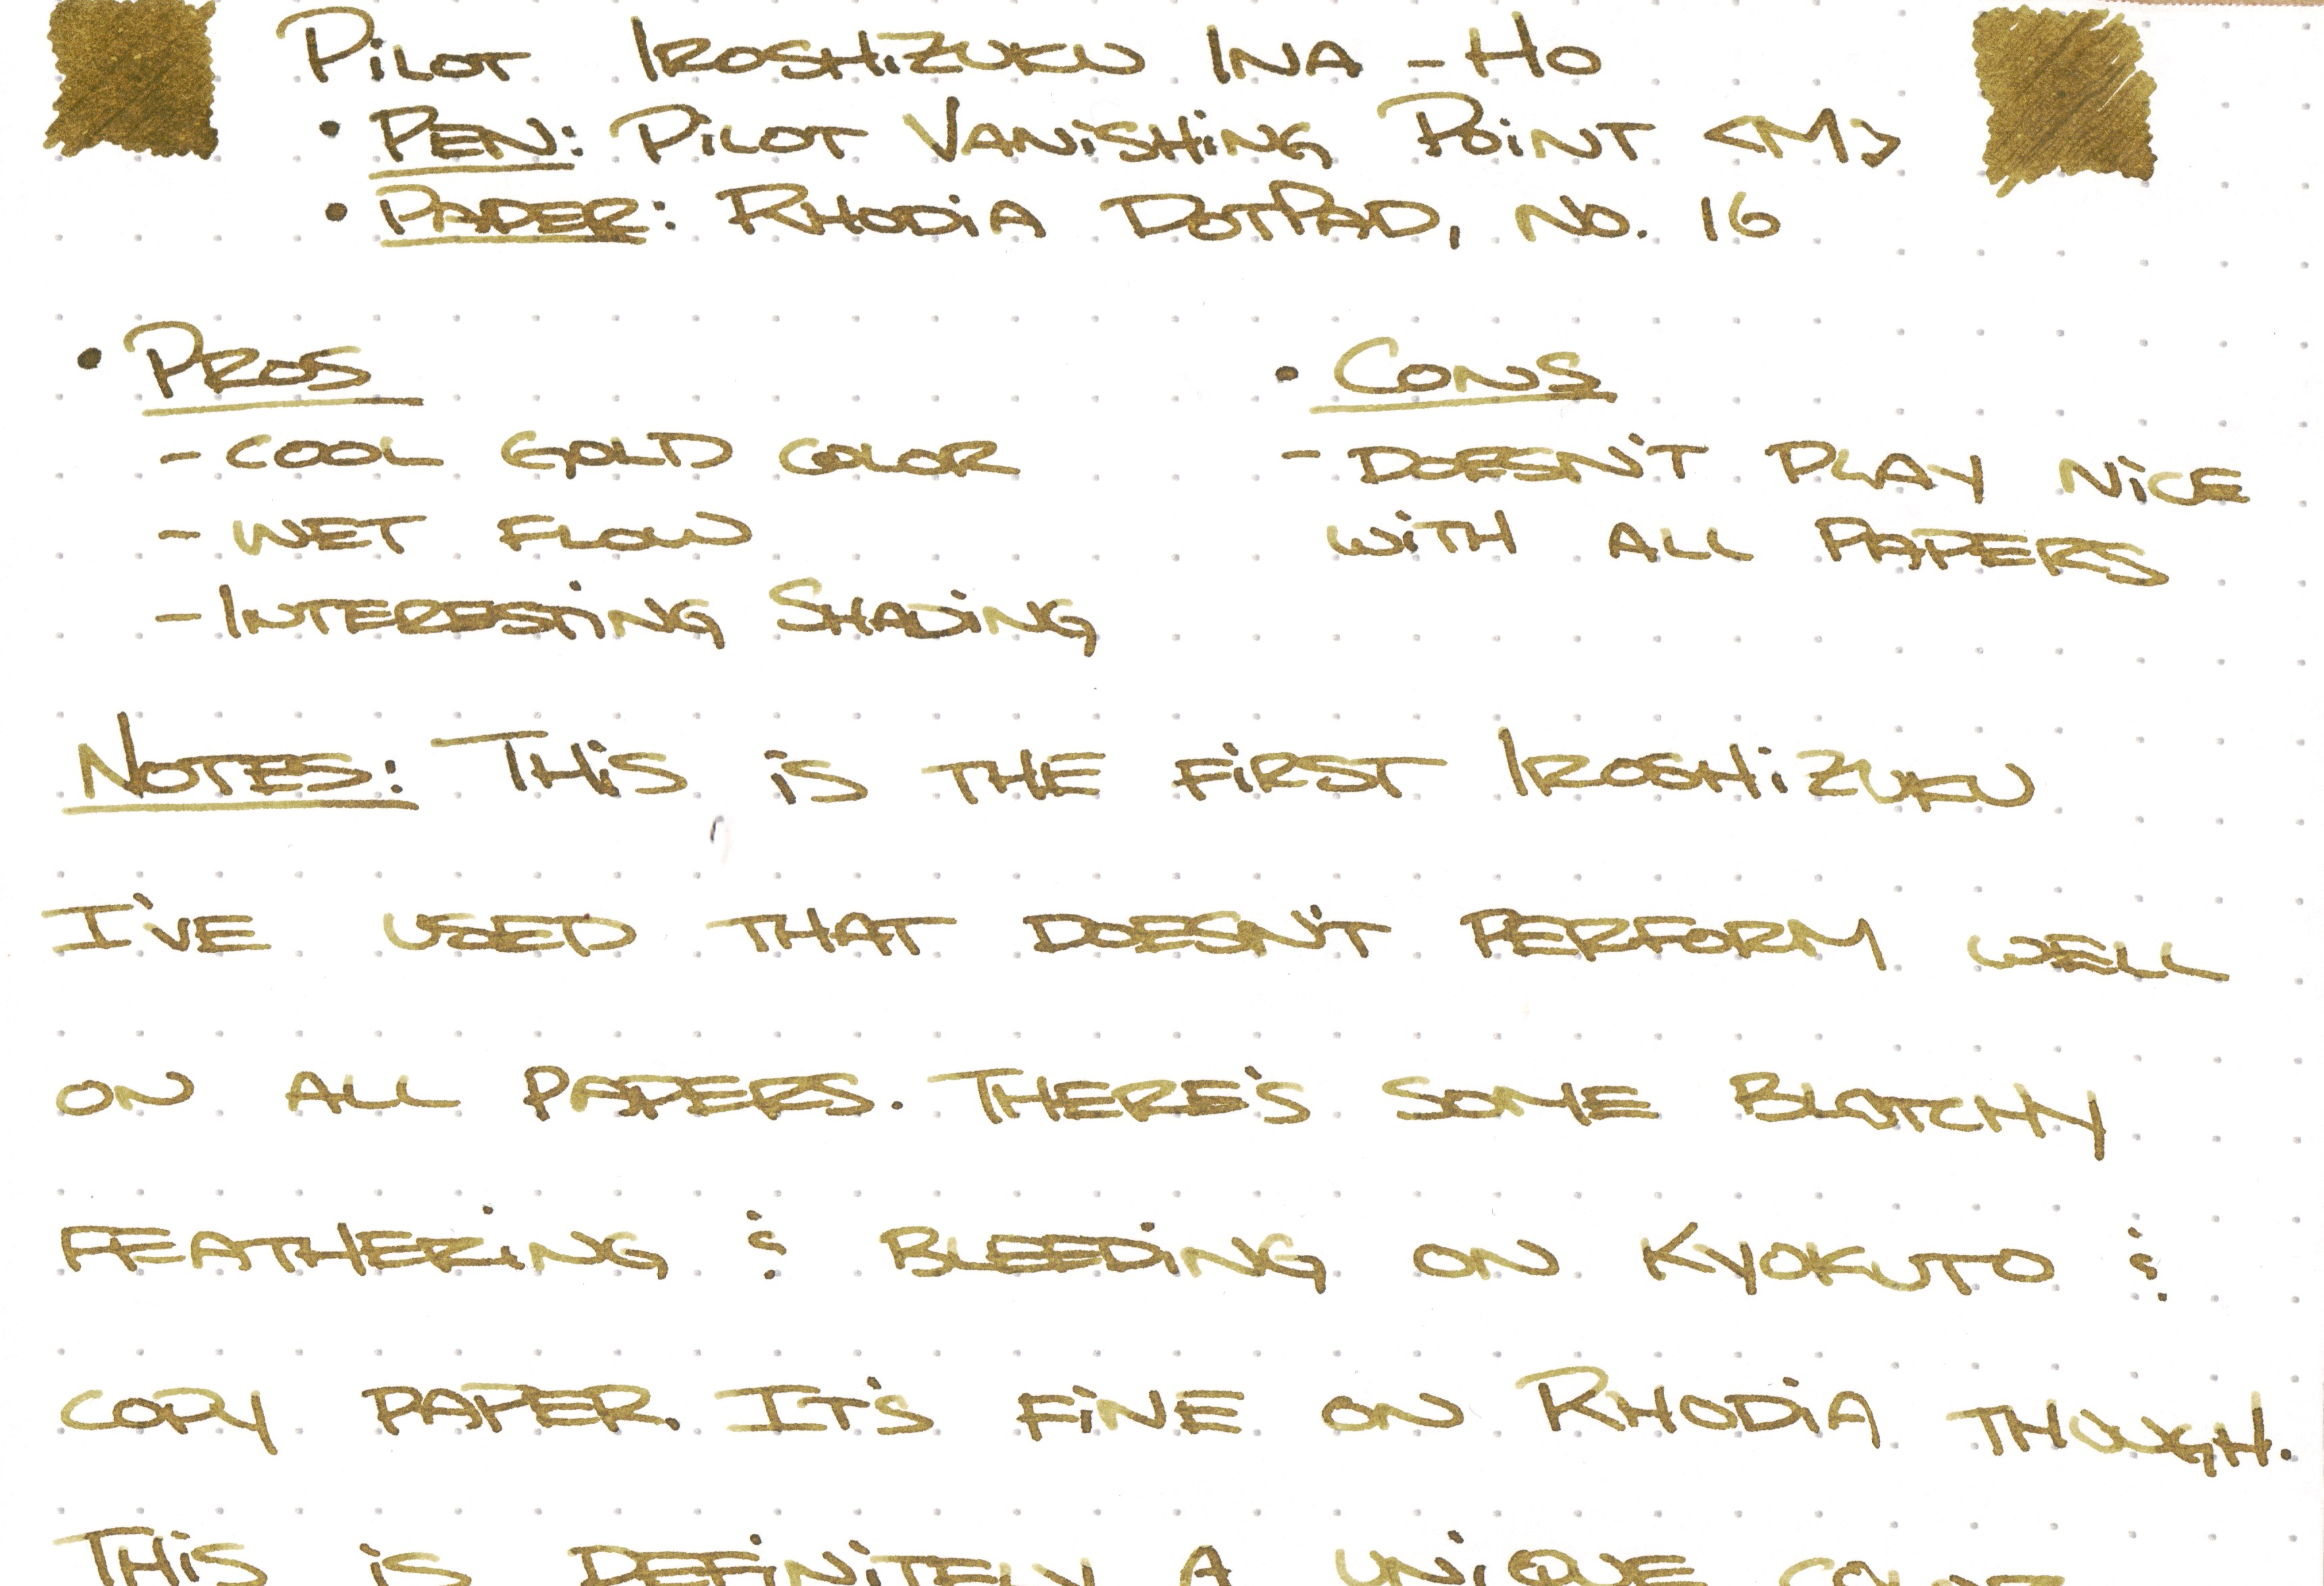 Pilot Iroshizuku Ina-Ho
• Pen: Pilot Vanishing Point <M>
• Paper: Rhodia DotPad, No. 16
• Pros
- Cool Gold Color
- Wet Flow
- Interesting Shading
• Cons
- Doesn't play nice
with all papers
Notes: This is the first Iroshizuku
I've used that doesn't perform well
on all papers. There's some blotchy
feathering & bleeding on Kyokuto &
copy paper. It's fine on Rhodia though.
This is definitely a unique color